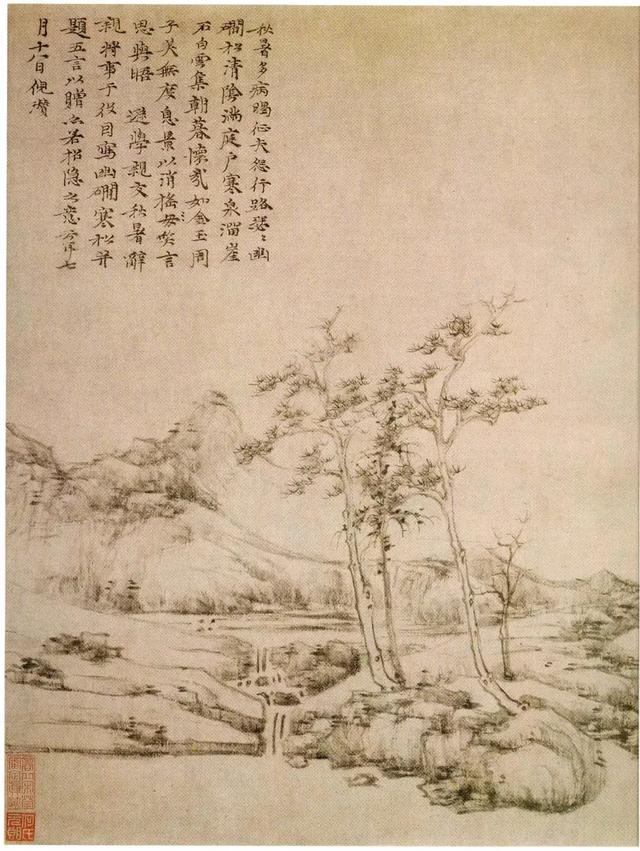 秋暑多病暍征夫怨行路瑟々幽
磵松清陰滿庭户寒泉溜崖
石白雲集朝暮懷哉如金玉周
子美無度息景以消搖笑言
思與晤 遜學親友秋暑辭
親將事于役因寫幽磵寒松并
題五言以贈亦若招隐之意云耳七
月十八日倪瓚